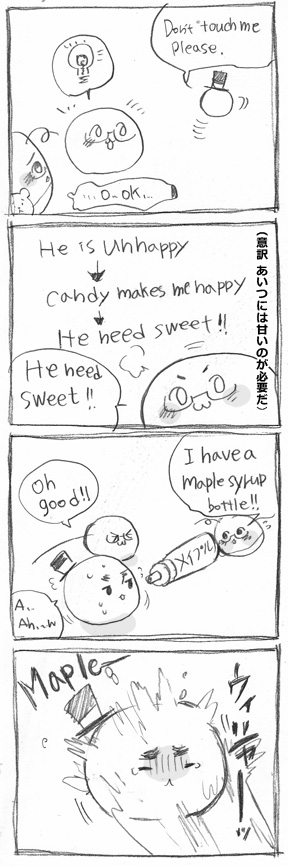 Don't touch me
Please.
...O-OK...
He is Unhappy
Candy makes me happy
He need sweet!!
(意訳 あいつには甘いのが必要だ)
He need
sweet!!
I have a
maple syrup
bottle!!
Oh
good!!
メイプル
A..
Ah..w
Maple
ウィッターッ